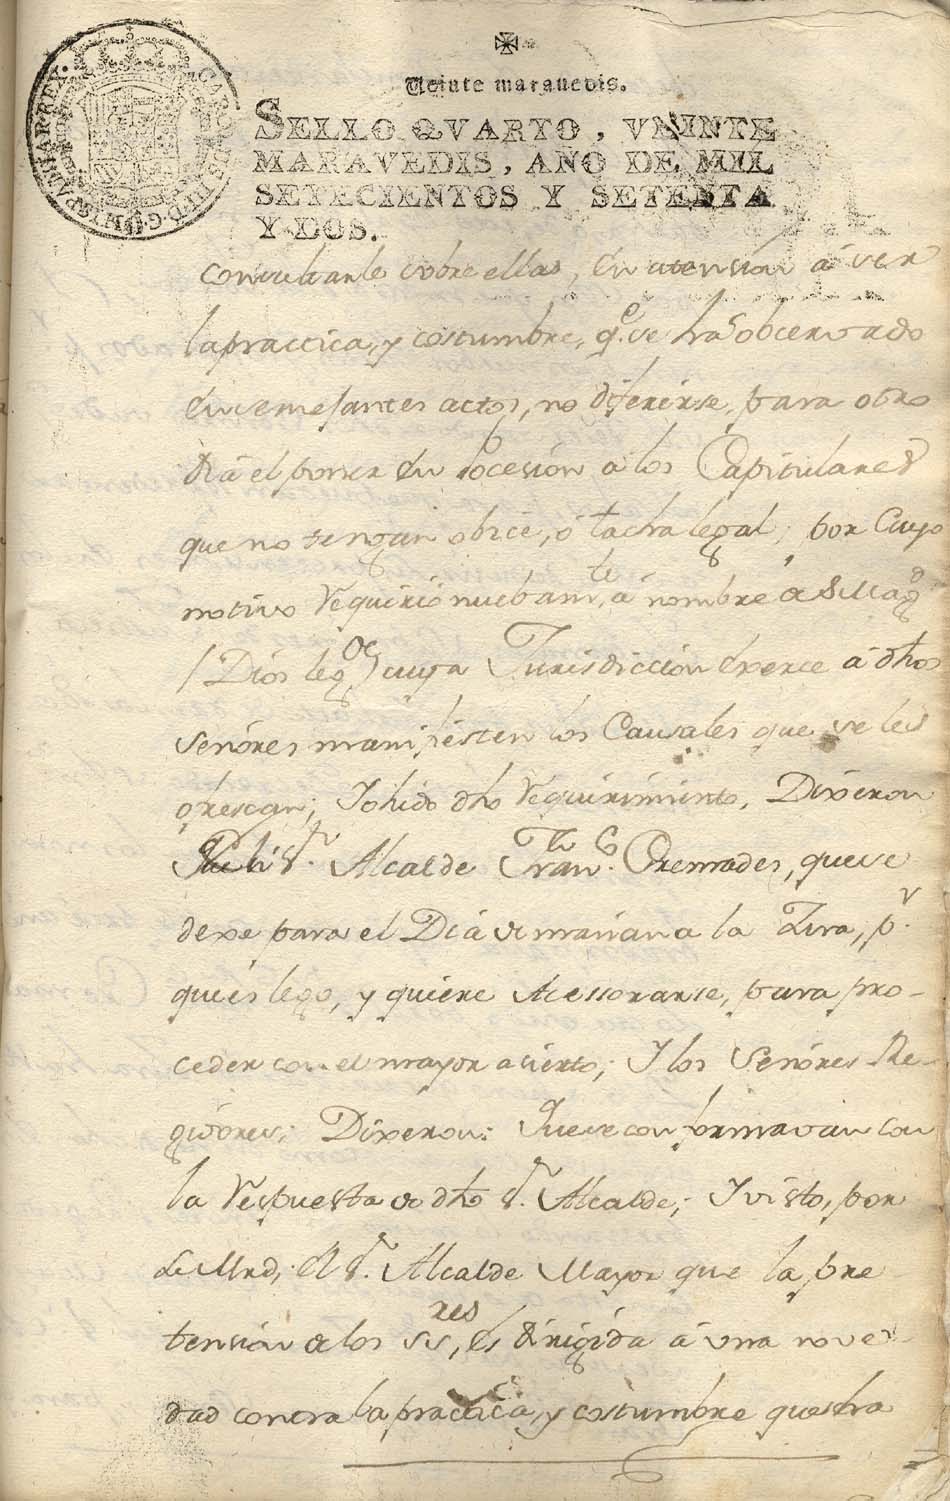 Veinte marauedis.
SELLO QVARTO, VEINTE
MARAVEDIS, AÑO DE MIL
SETECIENTOS Y SETENTA
Y DOS.
CAROLUS III D. G. HISPANIAR. REX.
consultarle sobre ellas, en atension á ser
la practica, y costumbre, qe. se ha obcervado
en semejantes actos, no diferirse, para otro
dia el poner en pocesión a los Capitulares
que no tengan obice, ó tacha legal; por cuyo
motivo requirió nuebamte. á nombre de S. Magd.
(Dios legGe) cuya Jurisdiccion exerce á dhos
señores manifiesten los Causales que se les
ofrescan; Y ohido dho requirimiento, Dixeron
Sr. Alcalde Franco. Cremades, que se
dexe para el Dia de mañana la Zira, pr.
que es lego, y quiere Acessorarse, para pro-
ceder con el mayor acierto; Y los Señores Re-
gidores; Dixeron: Que se conformavan con
la respuesta de dho Sr. Alcalde; Y visto, por
su Mrd, el Sr. Alcalde Mayor que la pre
tension de los Ssres, es dirigida á una nove-
dad contra la practica, y costumbre questra